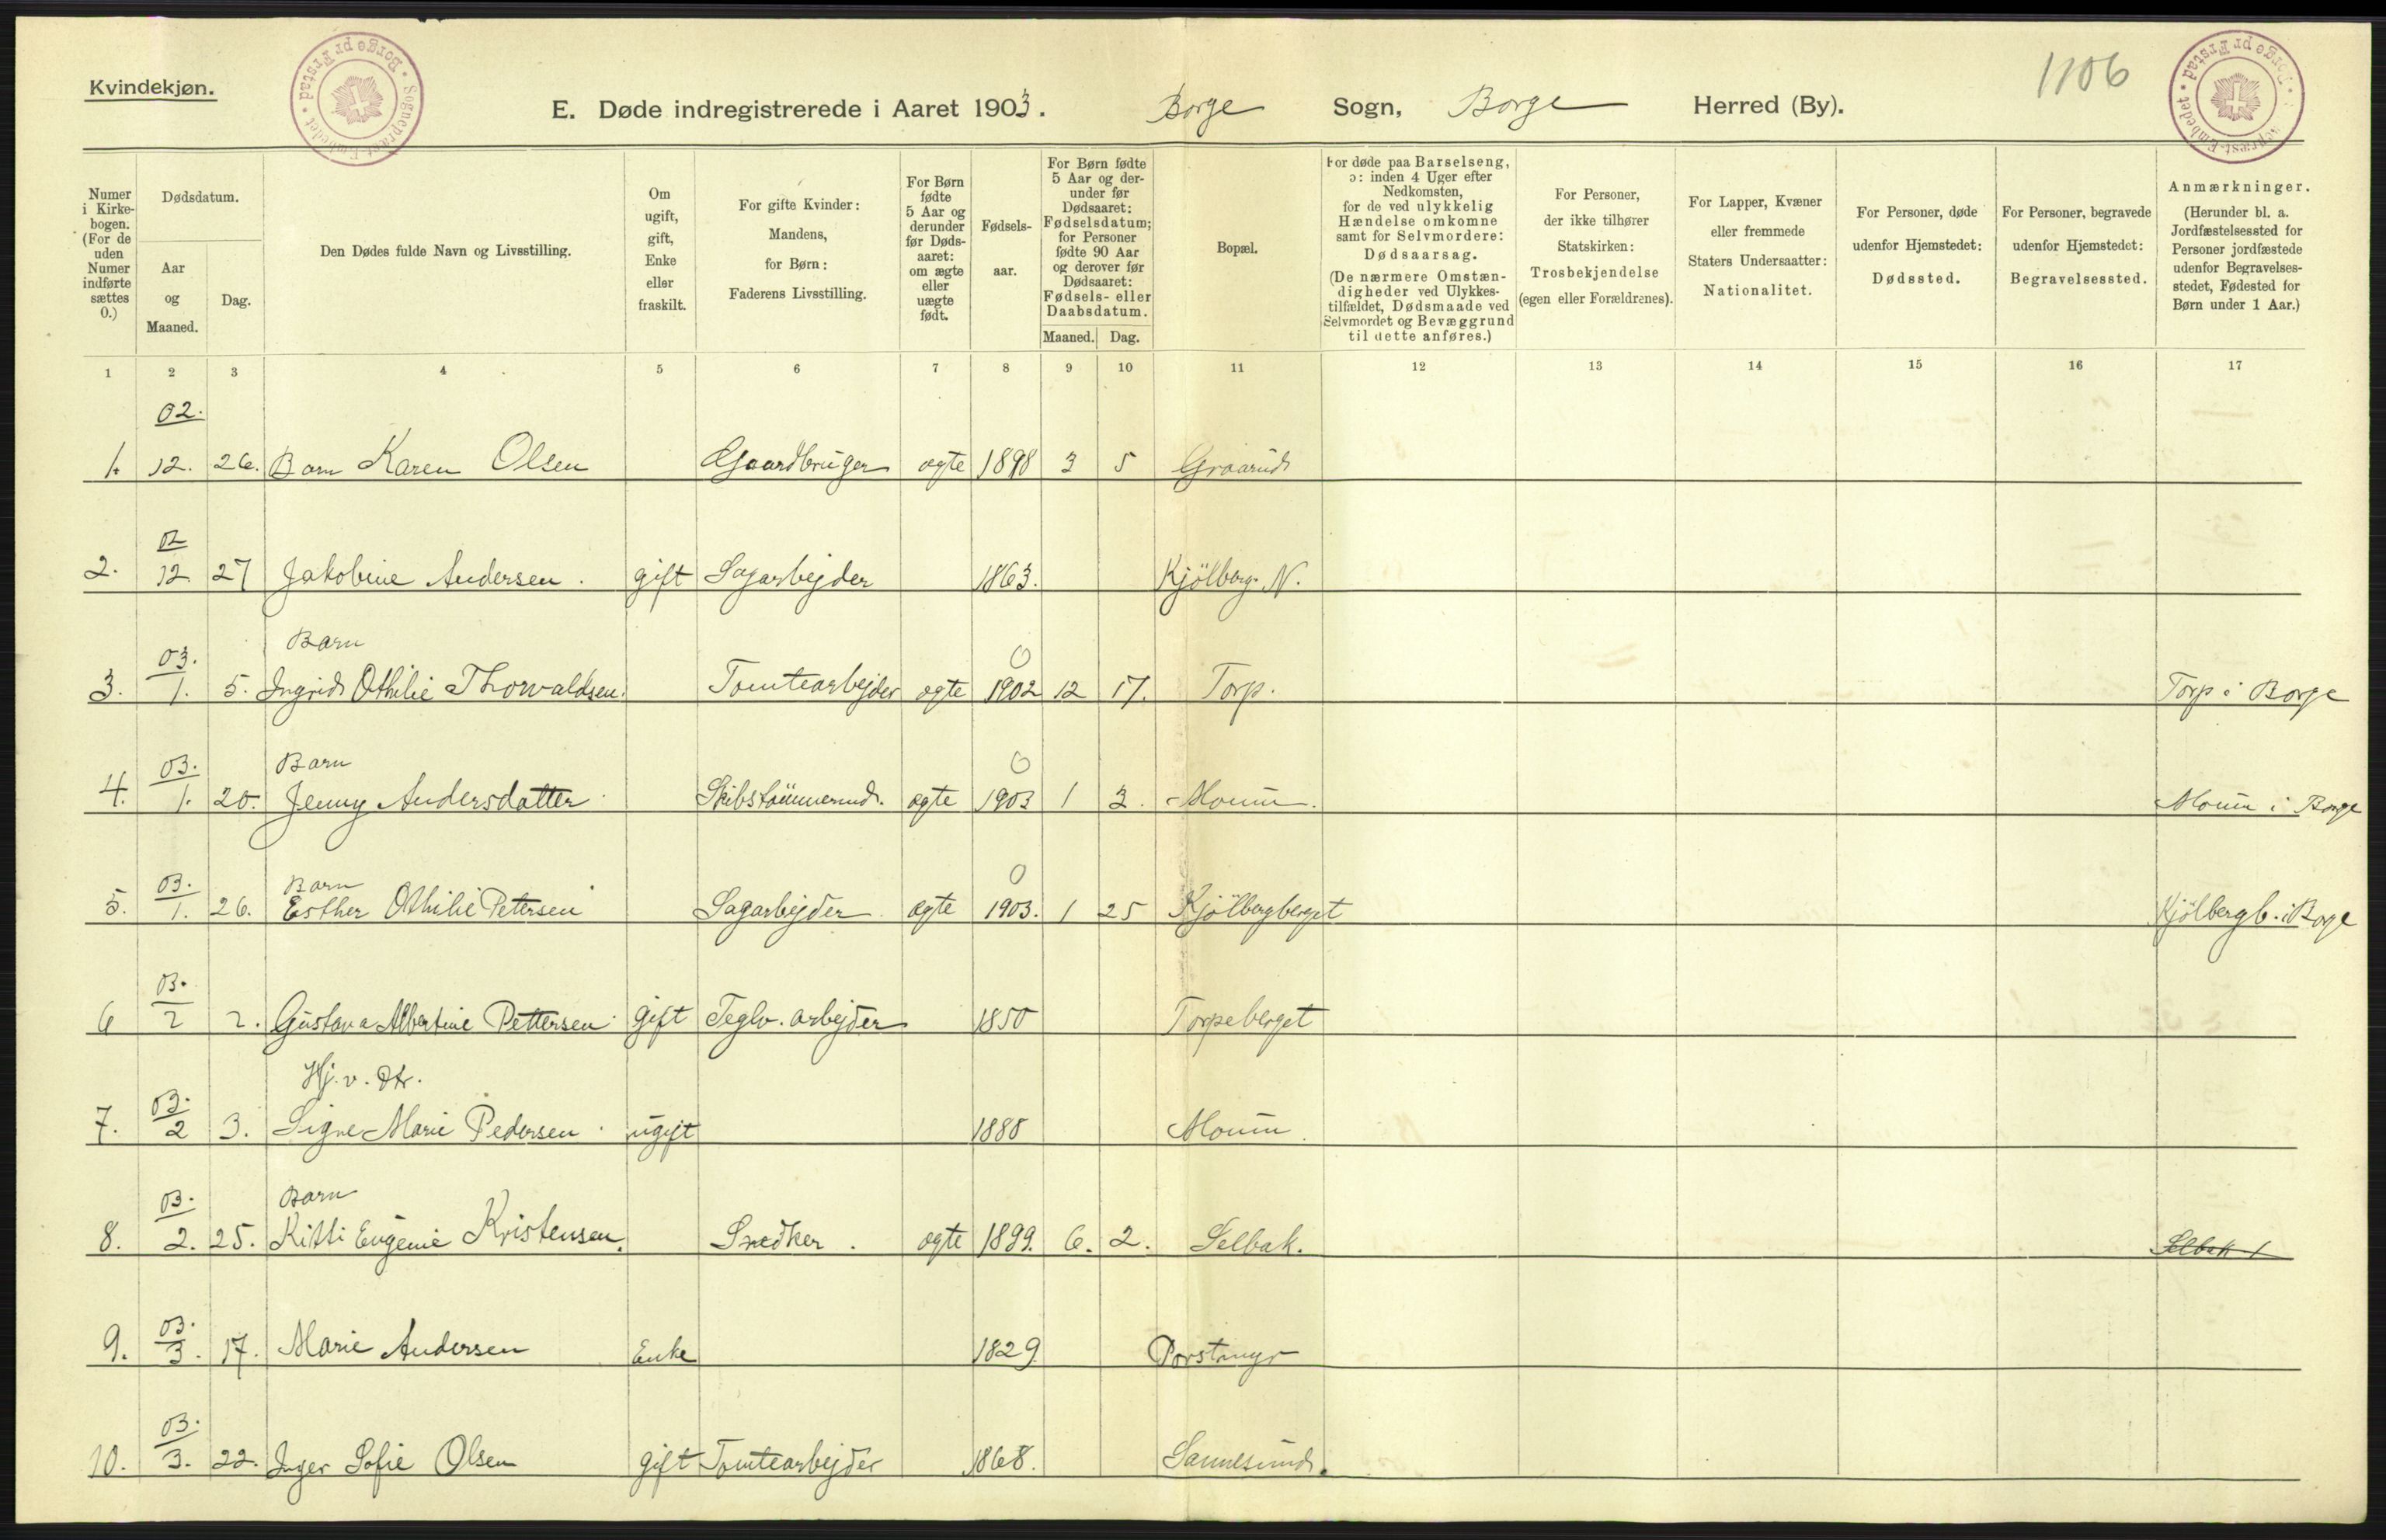 Kvindekjøn.
Sognepræst-Embedet • Borge pr Frstad •
E. Døde indregistrerede i Aaret 1903. Borge Sogn, Borge Herred (By).
1106
Sognepræst-Embedet • Borge pr Frstad •
Numer i Kirkebogen. (For de uden Numer indførte sættes 0.)
Dødsdatum.
Aar og Maaned.
Dag.
Den Dødes fulde Navn og Livsstilling.
Om ugift, gift, Enke eller fraskilt.
For gifte Kvinder: Mandens, for Børn: Faderens Livsstilling.
For Børn fødte 5 Aar og derunder før Dødsaaret: om ægte eller uægte født.
Fødselsaar.
For Børn fødte 5 Aar og derunder før Dødsaaret: Fødselsdatum; for Personer fødte 90 Aar og derover før Dødsaaret: Fødsels- eller Daabsdatum.
Maaned. Dag.
Bopæl.
For døde paa Barselseng, ɔ: inden 4 Uger efter Nedkomsten, for de ved ulykkelig Hændelse omkomne samt for Selvmordere: Dødsaarsag. (De nærmere Omstændigheder ved Ulykkestilfældet, Dødsmaade ved Selvmordet og Bevæggrund til dette anføres.)
For Personer, der ikke tilhører Statskirken: Trosbekjendelse (egen eller Forældrenes).
For Lapper, Kvæner eller fremmede Staters Undersaatter: Nationalitet.
For Personer, døde udenfor Hjemstedet: Dødssted.
For Personer, begravede udenfor Hjemstedet: Begravelsessted.
Anmærkninger. (Herunder bl. a. Jordfæstelsessted for Personer jordfæstede udenfor Begravelsesstedet, Fødested for Børn under 1 Aar.)
1 2 3 4 5 6 7 8 9 10 11 12 13 14 15 16 17
02.
1. 12. 26. Barn Karen Olsen Gaardbruger ægte 1898 3 5 Graarud
02
2. 12 27 Jakobine Andersen. gift Sagarbejder 1863. Kjölberg N.
03. Barn 0
3. 1. 5. Ingrid Othilie Thorvaldsen. Tomtearbejder ægte 1902 12 17. Torp. Torp i Borge
03. Barn 0
4. 1. 20. Jenny Andersdatter Skibstömmermd. ægte 1903 1 3. Moum. Moum i Borge
03. Barn 0
5. 1. 26. Esther Othilie Petersen Sagarbejder ægte 1903. 1 25 Kjölbergberget Kjölbergb. i Borge
03.
6 2 2. Gustava Albertine Pettersen gift Teglv. arbejder 1850 Torpeberget
03. Hj. v. Dtr.
7. 2 3. Signe Marie Pedersen ugift 1880 Moum.
03. Barn
8. 2. 25. Kitti Eugenie Kristensen. Snedker. ægte 1899. 6. 2. Selbak. Selbak i
03.
9. 3. 17. Marie Andersen Enke 1829.
03.
10. 3. 22. Inger Sofie Olsen gift Tomtearbejder 1868. Sannesund.